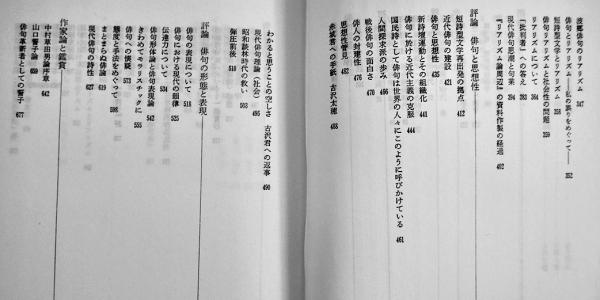 波郷俳句のリアリズム 347
俳句とリアリズム――私の誤りをめぐって―― 352
短詩型文学とリアリズム 358
俳句とリアリズムと社会性の問題 359
リアリズムについて 364
「批判者」への答え 383
現代俳句思潮と句業 394
『リアリズム論周辺』の資料作製の経過 402
評論 俳句と思想性
短詩型文学再出発の拠点 412
近代俳句の建設 421
俳句と思想性 435
新詩壇運動とその組織化 441
俳句に於ける近代主義の克服 444
国民詩として俳句は世界の人々にこのように呼びかけている 461
人間探求派の歩み 466
戦後俳句の面白さ 470
俳人の封建性 476
思想性管見 482
赤城君への手紙 古沢太穂 488
わかると思うことの空しさ 古沢君への返事 490
現代俳句理論(社会) 495
昭和談林時代の救い 503
弾圧前後 510
評論 俳句の形態と表現
俳句の表現について 518
俳句における現代の韻律 525
伝達力について 534
俳句形体論と俳句表現論 542
きわめてメモリスチックに 555
俳句への懐疑 573
態度と手法をめぐって 598
まとまらぬ俳論 619
現代俳句の詩性 627
作家論と鑑賞
中村草田男論序章 642
山口誓子論 650
俳句革新者としての誓子 677